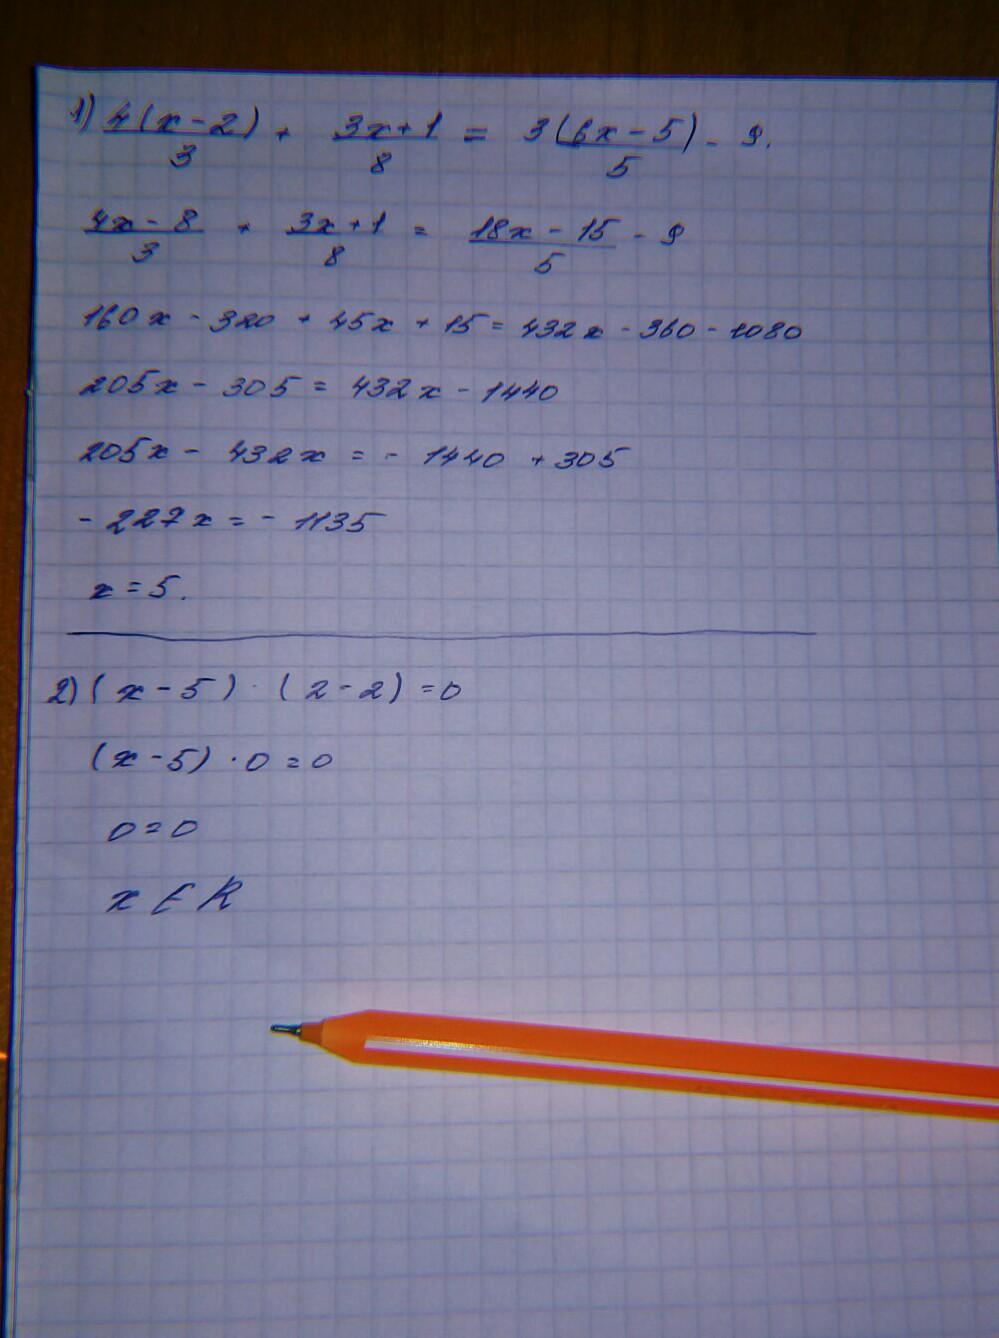 1) 4(x-2)/3 + 3x+1/8 = 3(6x-5)/5 - 9.
4x-8/3 + 3x+1/8 = 18x-15/5 - 9
160x - 320 + 45x + 15 = 432x - 360 - 1080
205x - 305 = 432x - 1440
205x - 432x = - 1440 + 305
- 227x = - 1135
x = 5.
2) (x-5) · (2-2) = 0
(x-5) · 0 = 0
0 = 0
x ∈ R